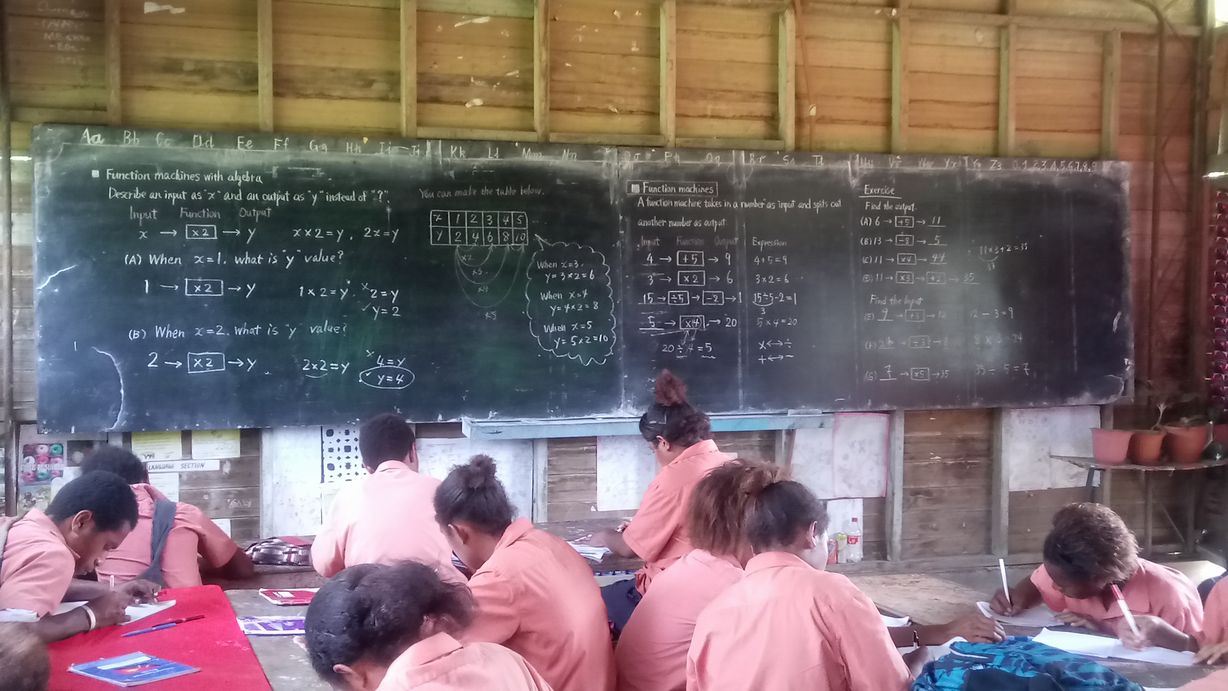 Aa Bb Cc Dd Ee Ff Gg Hh Ii Jj Kk Ll Mm Nn Pp Qq Rr Ss Tt Yy Zz 0,1,2,3,4,5,6,7,8,9
■ Function machines with algebra
Describe an input as "x" and an output as "y" instead of "?".
Input Function Output
x → ×2 → y x×2=y, 2x=y
(A) When x=1, what is "y" value?
1 → ×2 → y 1×2=y × 2=y
✓ y=2
(B) When x=2, what is "y" value?
2 → ×2 → y 2×2=y × 4=y
✓ y=4
You can make the table below.
x 1 2 3 4 5
y 2 4 6 8 10
×2
×3
×4
×5
When x=3,
y=3×2=6
When x=4
y=4×2=8
When x=5
y=5×2=10
■ Function machines
A function machine takes in a number as input and spits out
another number as output
Input Function Output Expression
4 → +5 → 9 4+5=9
3 → ×2 → 6 3×2=6
15 → ÷5 → -2 → 1 15÷5-2=1
3
5 → ×4 → 20 5×4=20
20÷4=5
×↔÷
+↔-
Exercise
Find the output.
(A) 6 → +5 → 11
(B) 13 → -8 → 5
(C) 11 → ×4 → 44
(D) 11 → ×3 → +2 → 35
11×3+2=35
33
Find the Input
(E) 9 → +3 → 12 12-3=9
(F) 24 → ÷3 → 8 8×3=24
(G) 7 → ×5 → 35 35÷5=7
LANGUAGE SECTION